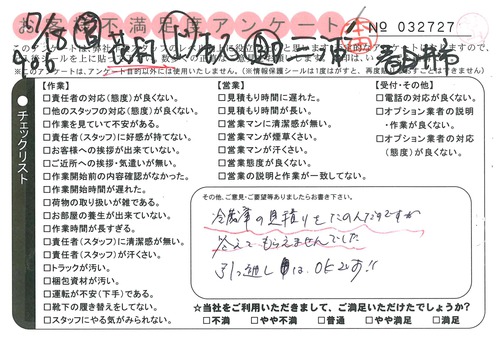 お客様不満足度アンケート
No 032727
【作業】
□責任者の対応(態度)が良くない。
□他のスタッフの対応(態度)が良くない。
□作業を見ていて不安がある。
□責任者(スタッフ)に好感が持てない。
□お客様への挨拶が出来ていない。
□ご近所への挨拶・気遣いが無い。
□作業開始前の内容確認がなかった。
□作業開始時間が遅れた。
□荷物の取り扱いが雑である。
□お部屋の養生が出来ていない。
□作業時間が長すぎる。
□責任者(スタッフ)に清潔感が無い。
□責任者(スタッフ)が汗くさい。
□トラックが汚い。
□梱包資材が汚い。
□運転が不安(下手)である。
□靴下の履き替えをしてない。
□スタッフにやる気がみられない。
【営業】
□見積もり時間に遅れた。
□見積もり時間が長い。
□営業マンに清潔感が無い。
□営業マンが煙草くさい。
□営業マンが汗くさい。
□営業態度が良くない。
□営業の説明と作業が一致してない。
【受付・その他】
□電話の対応が良くない。
□オプション業者の説明
・作業が良くない。
□オプション業者の対応
(態度)が良くない。
チェックリスト
その他、ご意見・ご要望等ありましたらお書き下さい。
冷蔵庫の見積りをたのんだのですが
答えてもらえませんでした
引っ越しは、OKです!!
☆当社をご利用いただきまして、ご満足いただけたでしょうか?
□不満 □やや不満 □普通 □やや満足 □満足